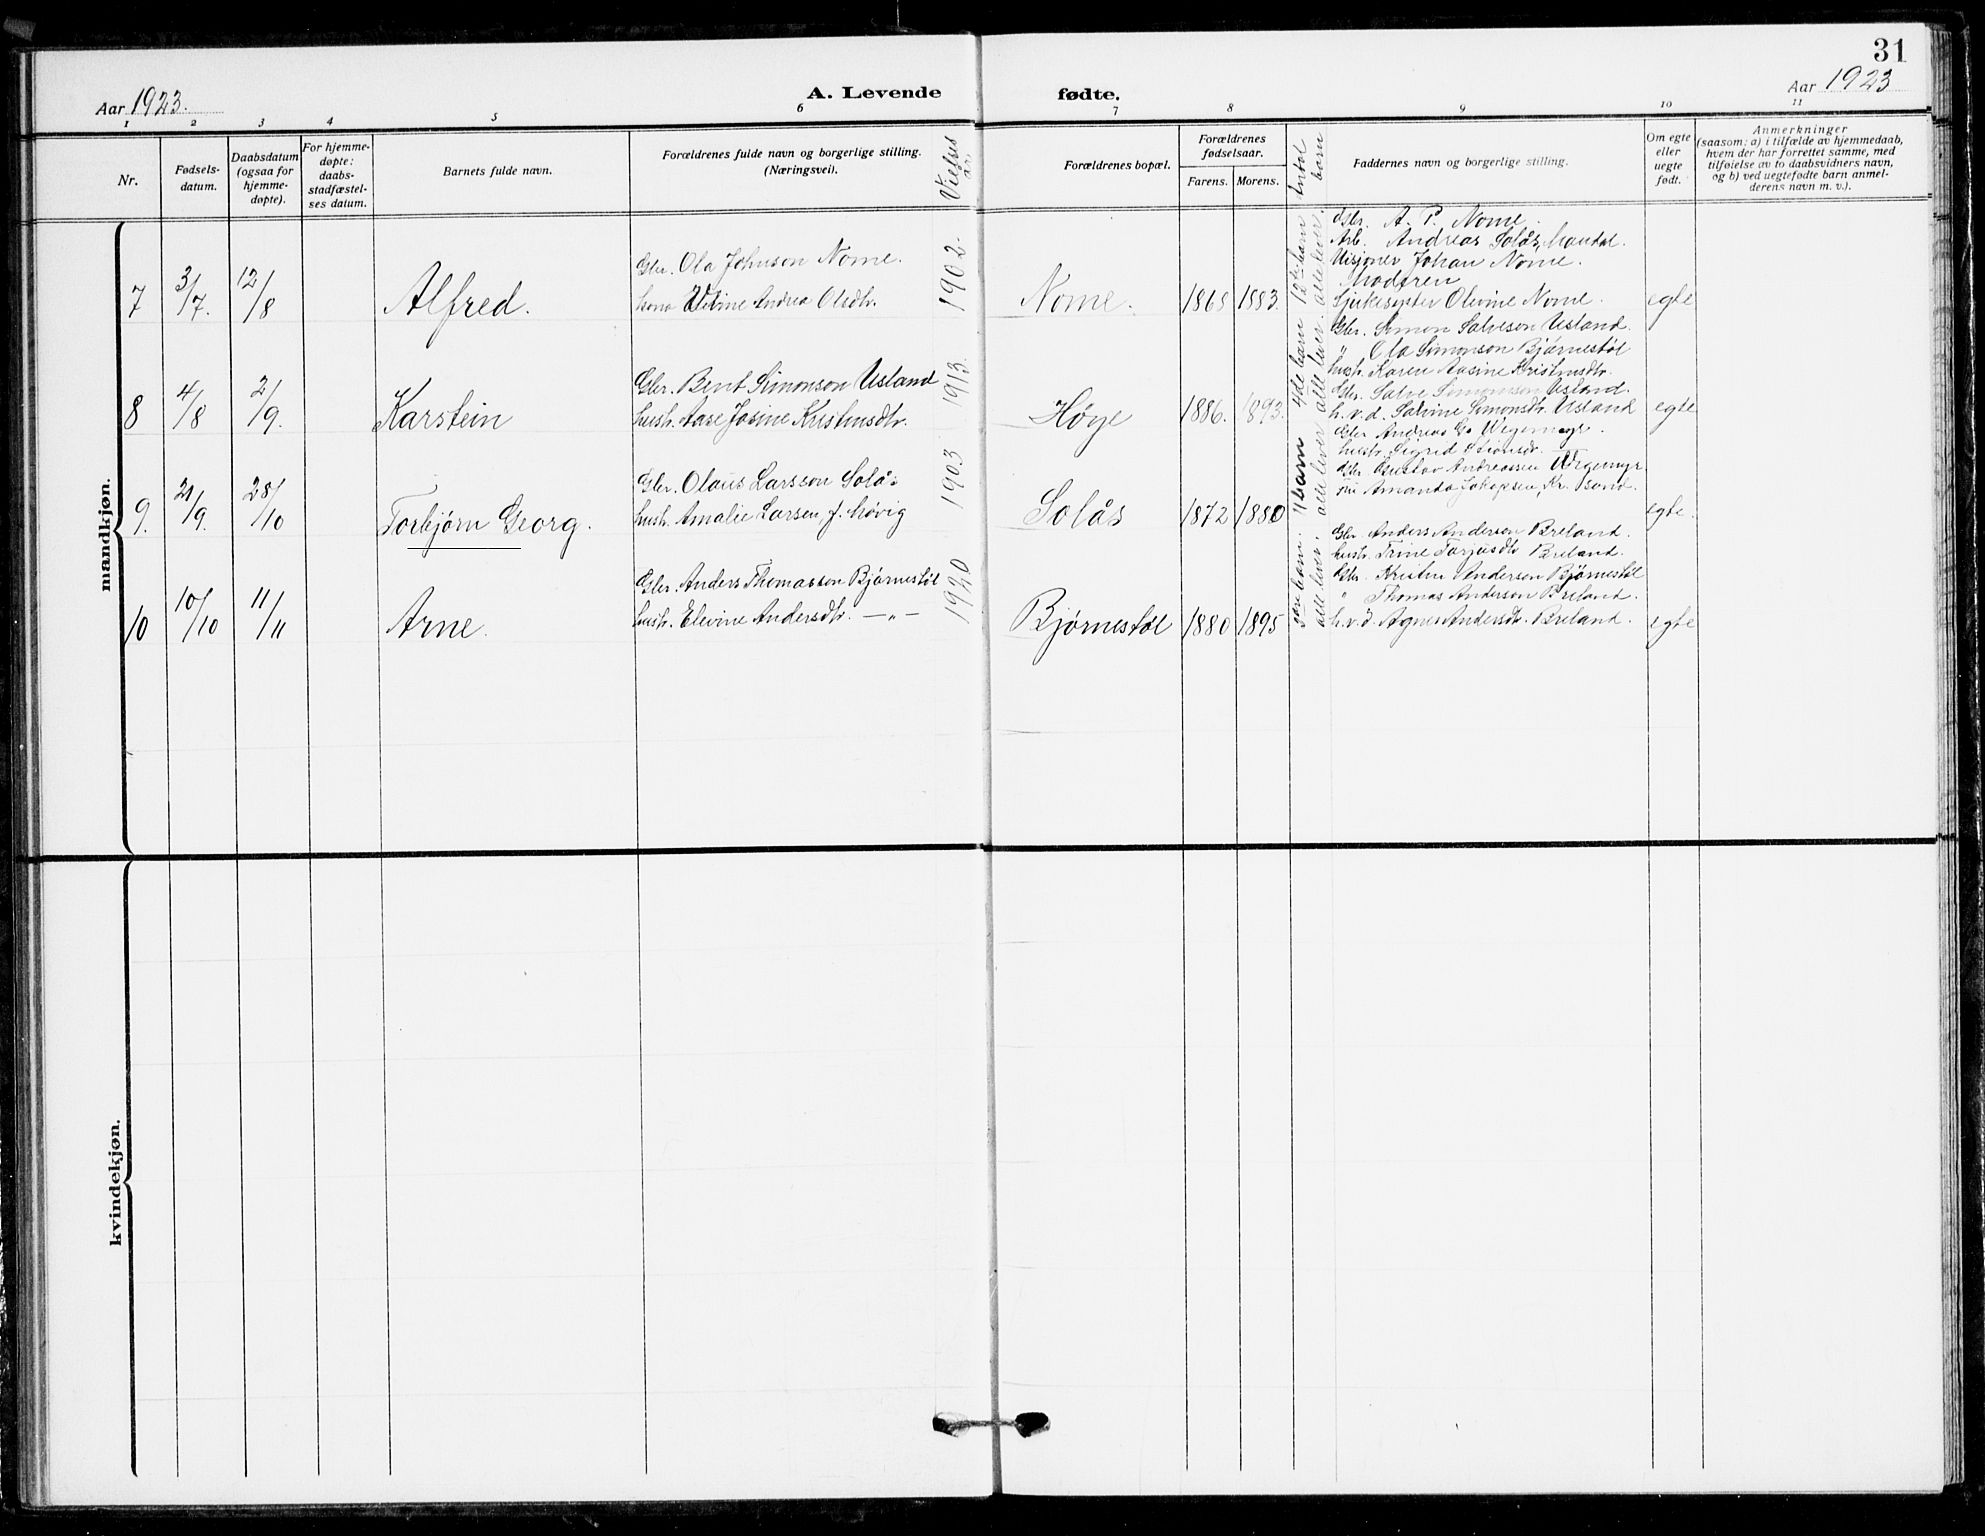 31
Aar 1923.
A. Levende
fødte.
Aar 1923
1 2 3 4 5 6 7 8 9 10 11
Nr.
Fødsels-
datum.
Daabsdatum
(ogsaa for
hjemme-
døpte).
For hjemme-
døpte:
daabs-
stadfæstel-
ses datum.
Barnets fulde navn.
Forældrenes fulde navn og borgerlige stilling.
(Næringsvei).
Vielses
Forældrenes bopæl.
Forældrenes
fødselsaar.
Farens. Morens.
Antal
barn
Faddernes navn og borgerlige stilling.
Om egte
eller
uegte
født.
Anmerkninger
(saasom: a) i tilfælde av hjemmedaab,
hvem der har forrettet samme, med
tilføielse av to daabsvidners navn,
og b) ved uegtefødte barn anmel-
derens navn m. v.).
mandkjøn.
7 3/7. 12/8 Alfred.
Gbr. Ola Johnson Nome.
kona Andrea Olsdtr.
1902.
Nome. 1865 1883.
12te barn
alle lever.
Gbr. A. P. Nome.
Arb. Andreas Solås, Mandal.
Misjonær Johan Nome.
Moderen
Sjukesøster Olevine Nome.
egte
8 4/8 2/9. Karstein
Gbr. Bent Simonson Usland
hustr. Aase Josine Kristensdtr.
1913.
Høye 1886. 1893.
4de barn
alle lever.
Gbr. Simon Salveson Usland.
" Ola Simonson Bjørnestøl
hustr. Karen Aasine Kristensdtr.
Gbr. Salve Simonson Usland.
h. v. d. Salvine Simonsdtr. Usland
egte
9. 21/9. 28/10 Torbjørn Georg.
Gbr. Olaus Larsson Solås
hustr. Amalie Larsen, f. Høvig
1903
Solås 1872 1880
11 barn.
alle lever
Gbr Andreas G. Wegemyr.
hustr. Sigrid
Gbr. Gustav Andreassen Wegemyr
Amanda Jakobsen, Kr. sand.
egte.
10 10/10 11/11 Arne.
Gbr. Anders Thomasson Bjørnestøl
hustr. Elevine Andersdtr. — " —
1920
Bjørnestøl 1880 1895
barn.
alle lever.
Gbr. Anders Anderson Breland.
hustr. Trine Tarjusdtr Breland.
Gbr. Kristen Anderson Bjørnestøl
" Thomas Anderson Breland.
h. v. d. Agnes Andersdtr. Breland.
egte
kvindekjøn.